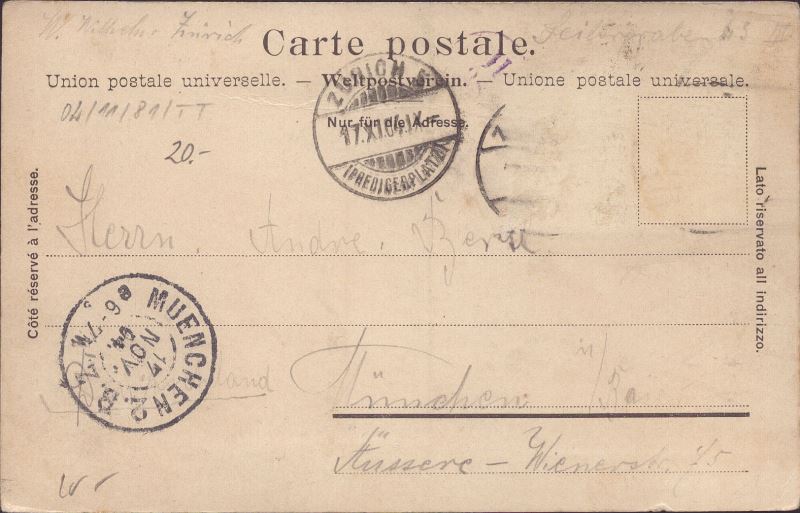 W. Wilhelm Zürich
Seilergraben 53 III
Carte postale.
Union postale universelle. — Weltpostverein. — Unione postale universale.
Nur für die Adresse.
04/11/81/TT
ZÜRICH
17.XI.04.IX
(PREDIGERPLATZ)
20.-
Côté réservé à l'adresse.
Lato riservato all indirizzo.
Herrn. Andre.
MUENCHEN 2. B.Z.
17
NOV
04.
6-7
München
Äussere - Wienerstr. 75